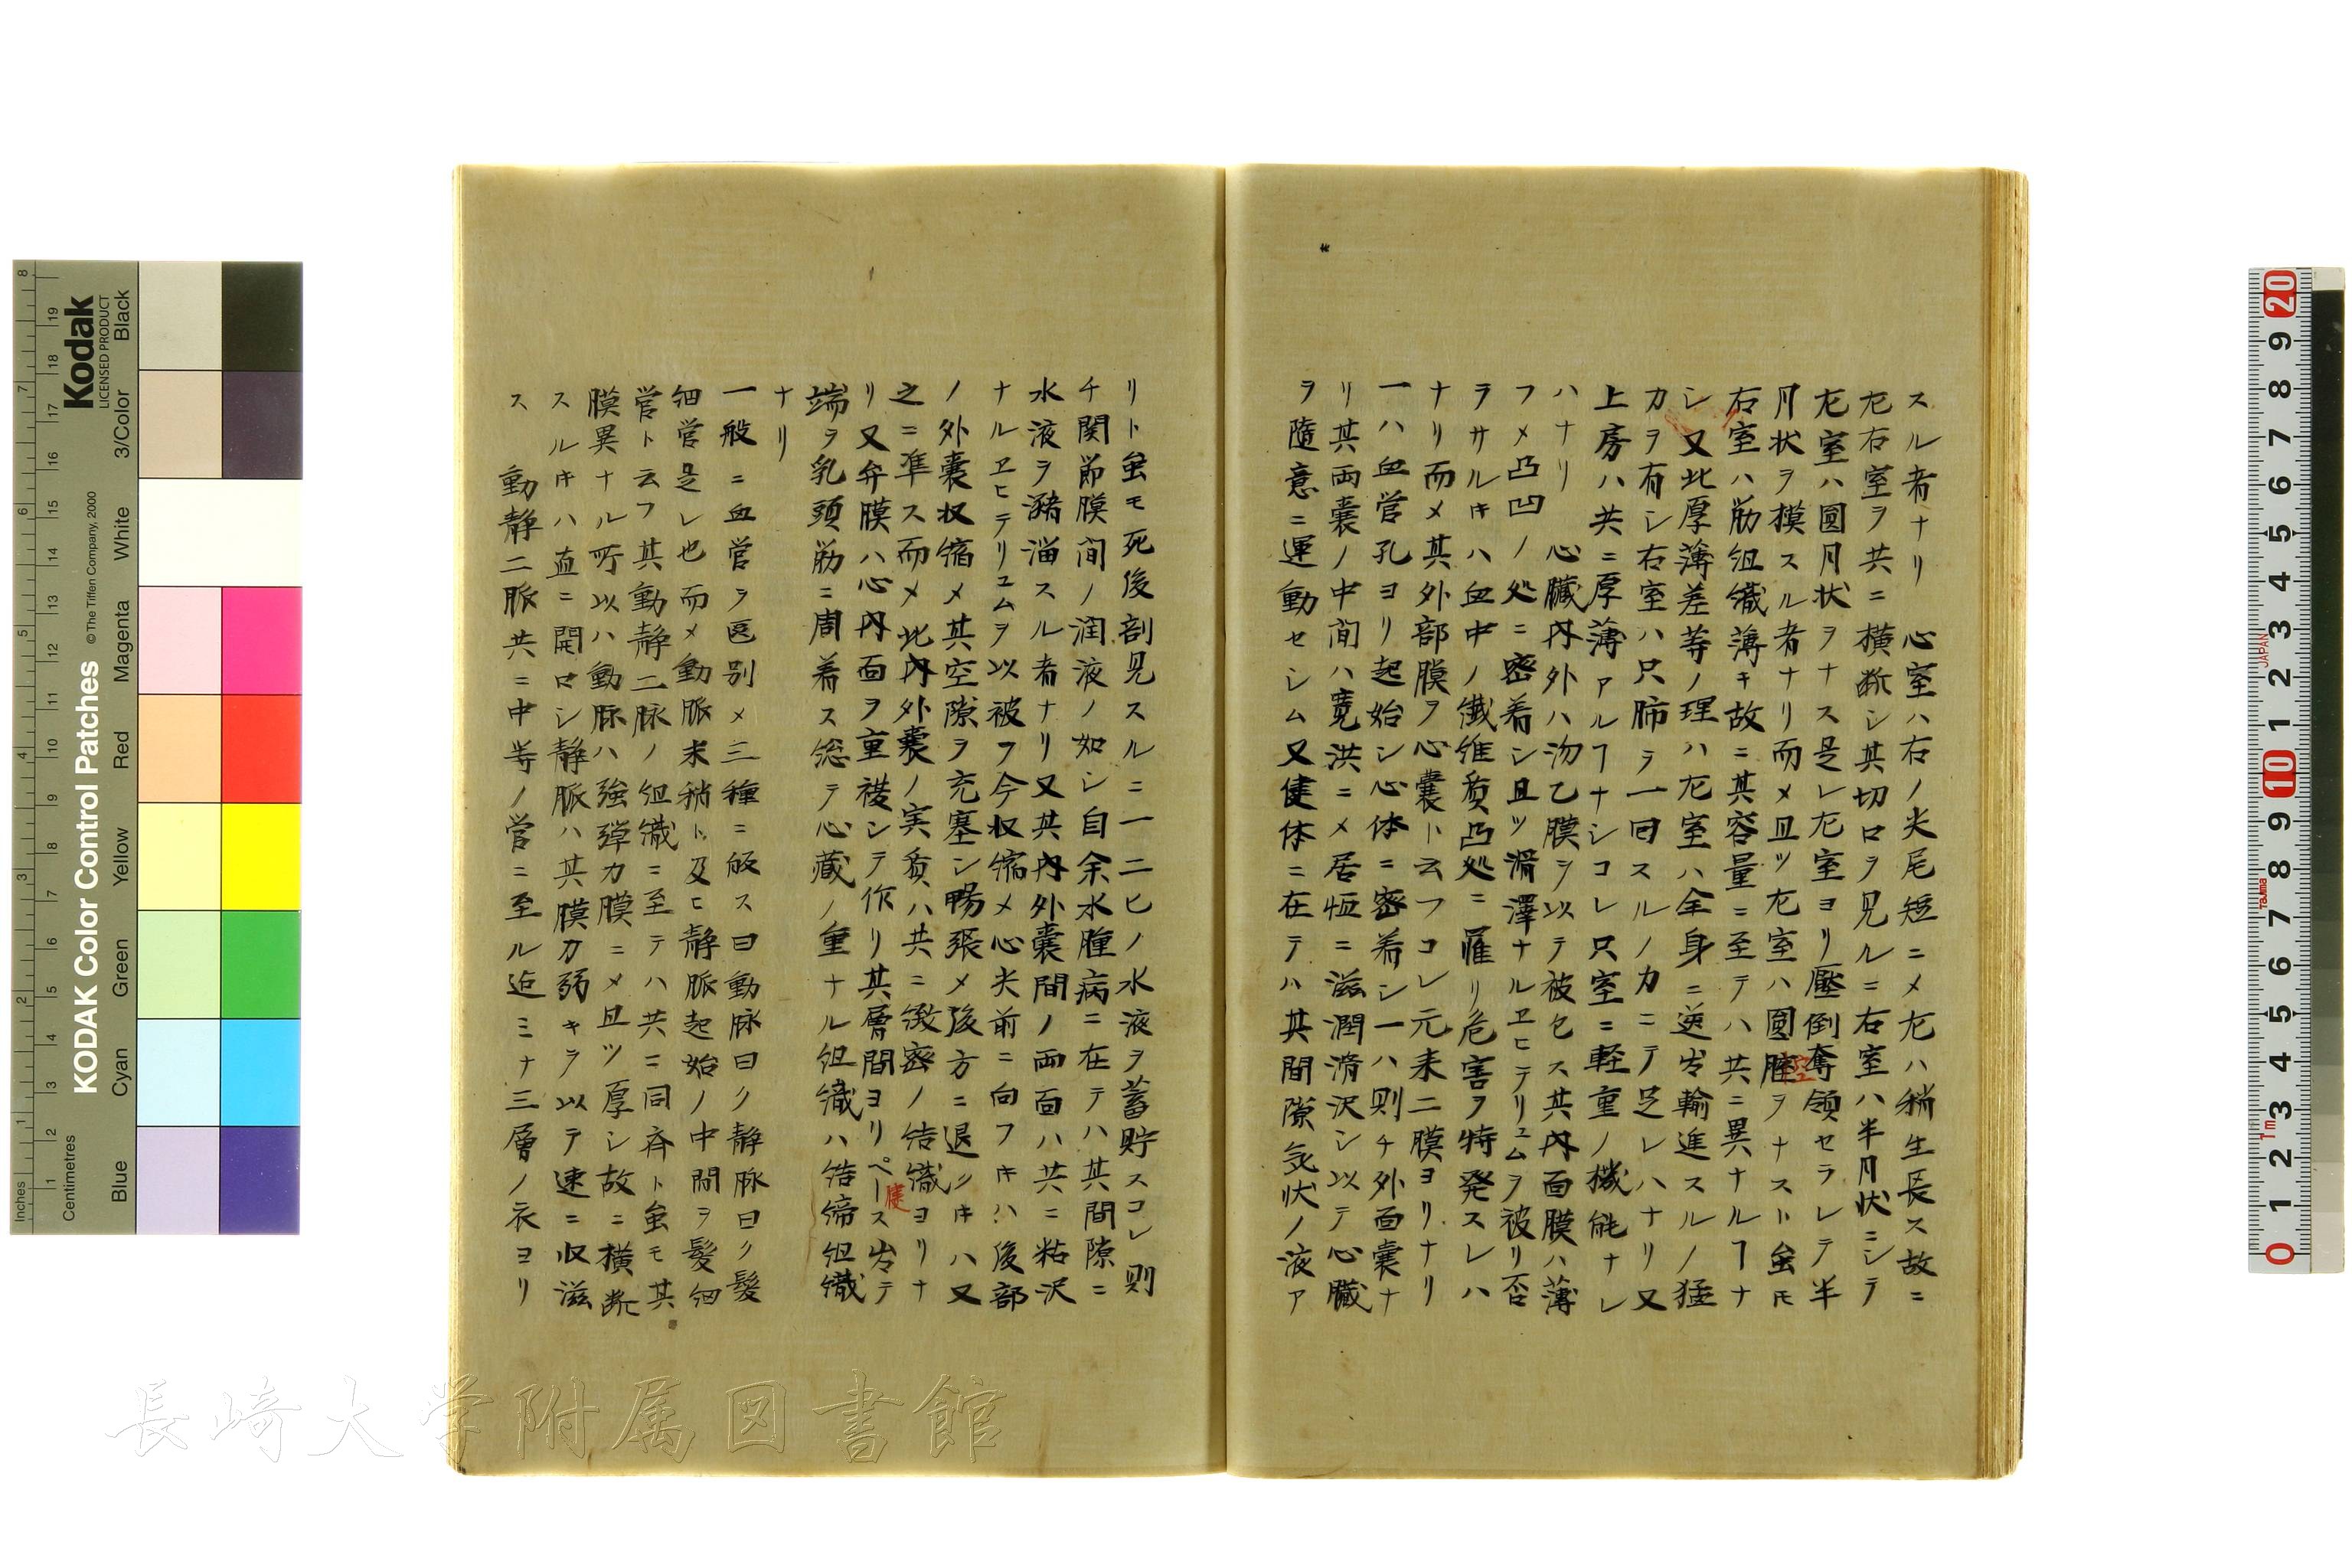 スル者ナリ 心室ハ右ノ尖尾短ニメ左ハ稍生長ス故ニ
左右室ヲ共ニ横断シ其切口ヲ見ルニ右室ハ半月状ニシテ
左室ハ圓月状ヲナス是レ左室ヨリ壓倒奪領セラレテ半
月状ヲ模スル者ナリ而メ且ツ左室ハ圓腔ヲナスト虽モ
右室ハ筋組織薄キ故ニ其容量ニ至テハ共ニ異ナルヿナ
シ又此厚薄差等ノ理ハ左室ハ全身ニ逆出輸進スルノ猛
力ヲ有シ右室ハ只肺ヲ一回スルノ力ニテ足レハナリ又
上房ハ共ニ厚薄アルヿナシコレ只室ニ軽重ノ機能ナレ
ハナリ 心臓内外ハ沕乙膜ヲ以テ被包ス其内面膜ハ薄
フメ凸凹ノ処ニ密着シ且ツ滑澤ナルヱヒテリュムヲ被リ否
ラサルキハ血中ノ繊維質凸処ニ罹リ危害ヲ特発スレハ
ナリ而メ其外部膜ヲ心嚢ト云フコレ元来二膜ヨリナリ
一ハ血管孔ヨリ起始シ心体ニ密着シ一ハ則チ外面嚢ナ
リ其両嚢ノ中間ハ寛洪ニメ居恒ニ滋潤滑沢シ以テ心臓
ヲ随意ニ運動セシム又健体ニ在テハ其間隙気状ノ液ア
リト虽モ死後剖見スルニ一二ヒノ水液ヲ蓄貯スコレ則
チ関節膜間ノ潤液ノ如シ自余水腫病ニ在テハ其間隙ニ
水液ヲ瀦溜スル者ナリ又其内外嚢間ノ両面ハ共ニ粘沢
ナルヱヒテリユムヲ以被フ今収縮メ心尖前ニ向フキハ後部
ノ外嚢収縮メ其空隙ヲ充塞シ暢張メ後方ニ退クキハ又
之ニ準ス而メ此内外嚢ノ実質ハ共ニ緻密ノ結織ヨリナ
リ又弁膜ハ心内面ヲ重複シテ作リ其層間ヨリペース出テ
端ヲ乳頭筋ニ周着ス総テ心蔵ノ重ナル組織ハ結締組織
ナリ
一般ニ血管ヲ区別メ三種ニ皈ス曰動脉曰ク静脉曰ク髪
細管是レ也而メ動脈末稍ト及ヒ静脈起始ノ中間ヲ髪細
管ト云フ其動静二脉ノ組織ニ至テハ共ニ同斉ト虽モ其
膜異ナル所以ハ動脉ハ強弾力膜ニメ且ツ厚シ故ニ横断
スルキハ直ニ開口シ静脈ハ其膜力弱キヲ以テ速ニ収滋
ス 動静二脈共ニ中等ノ管ニ至ル迄ミナ三層ノ衣ヨリ
腔
膜
長崎大学附属図書館
Kodak
LICENSED PRODUCT
KODAK Color Control Patches
© The Tiffen Company, 2000
Inches
Centimetres
Blue
Cyan
Green
Yellow
Red
Magenta
White
3/Color
Black
JAPAN